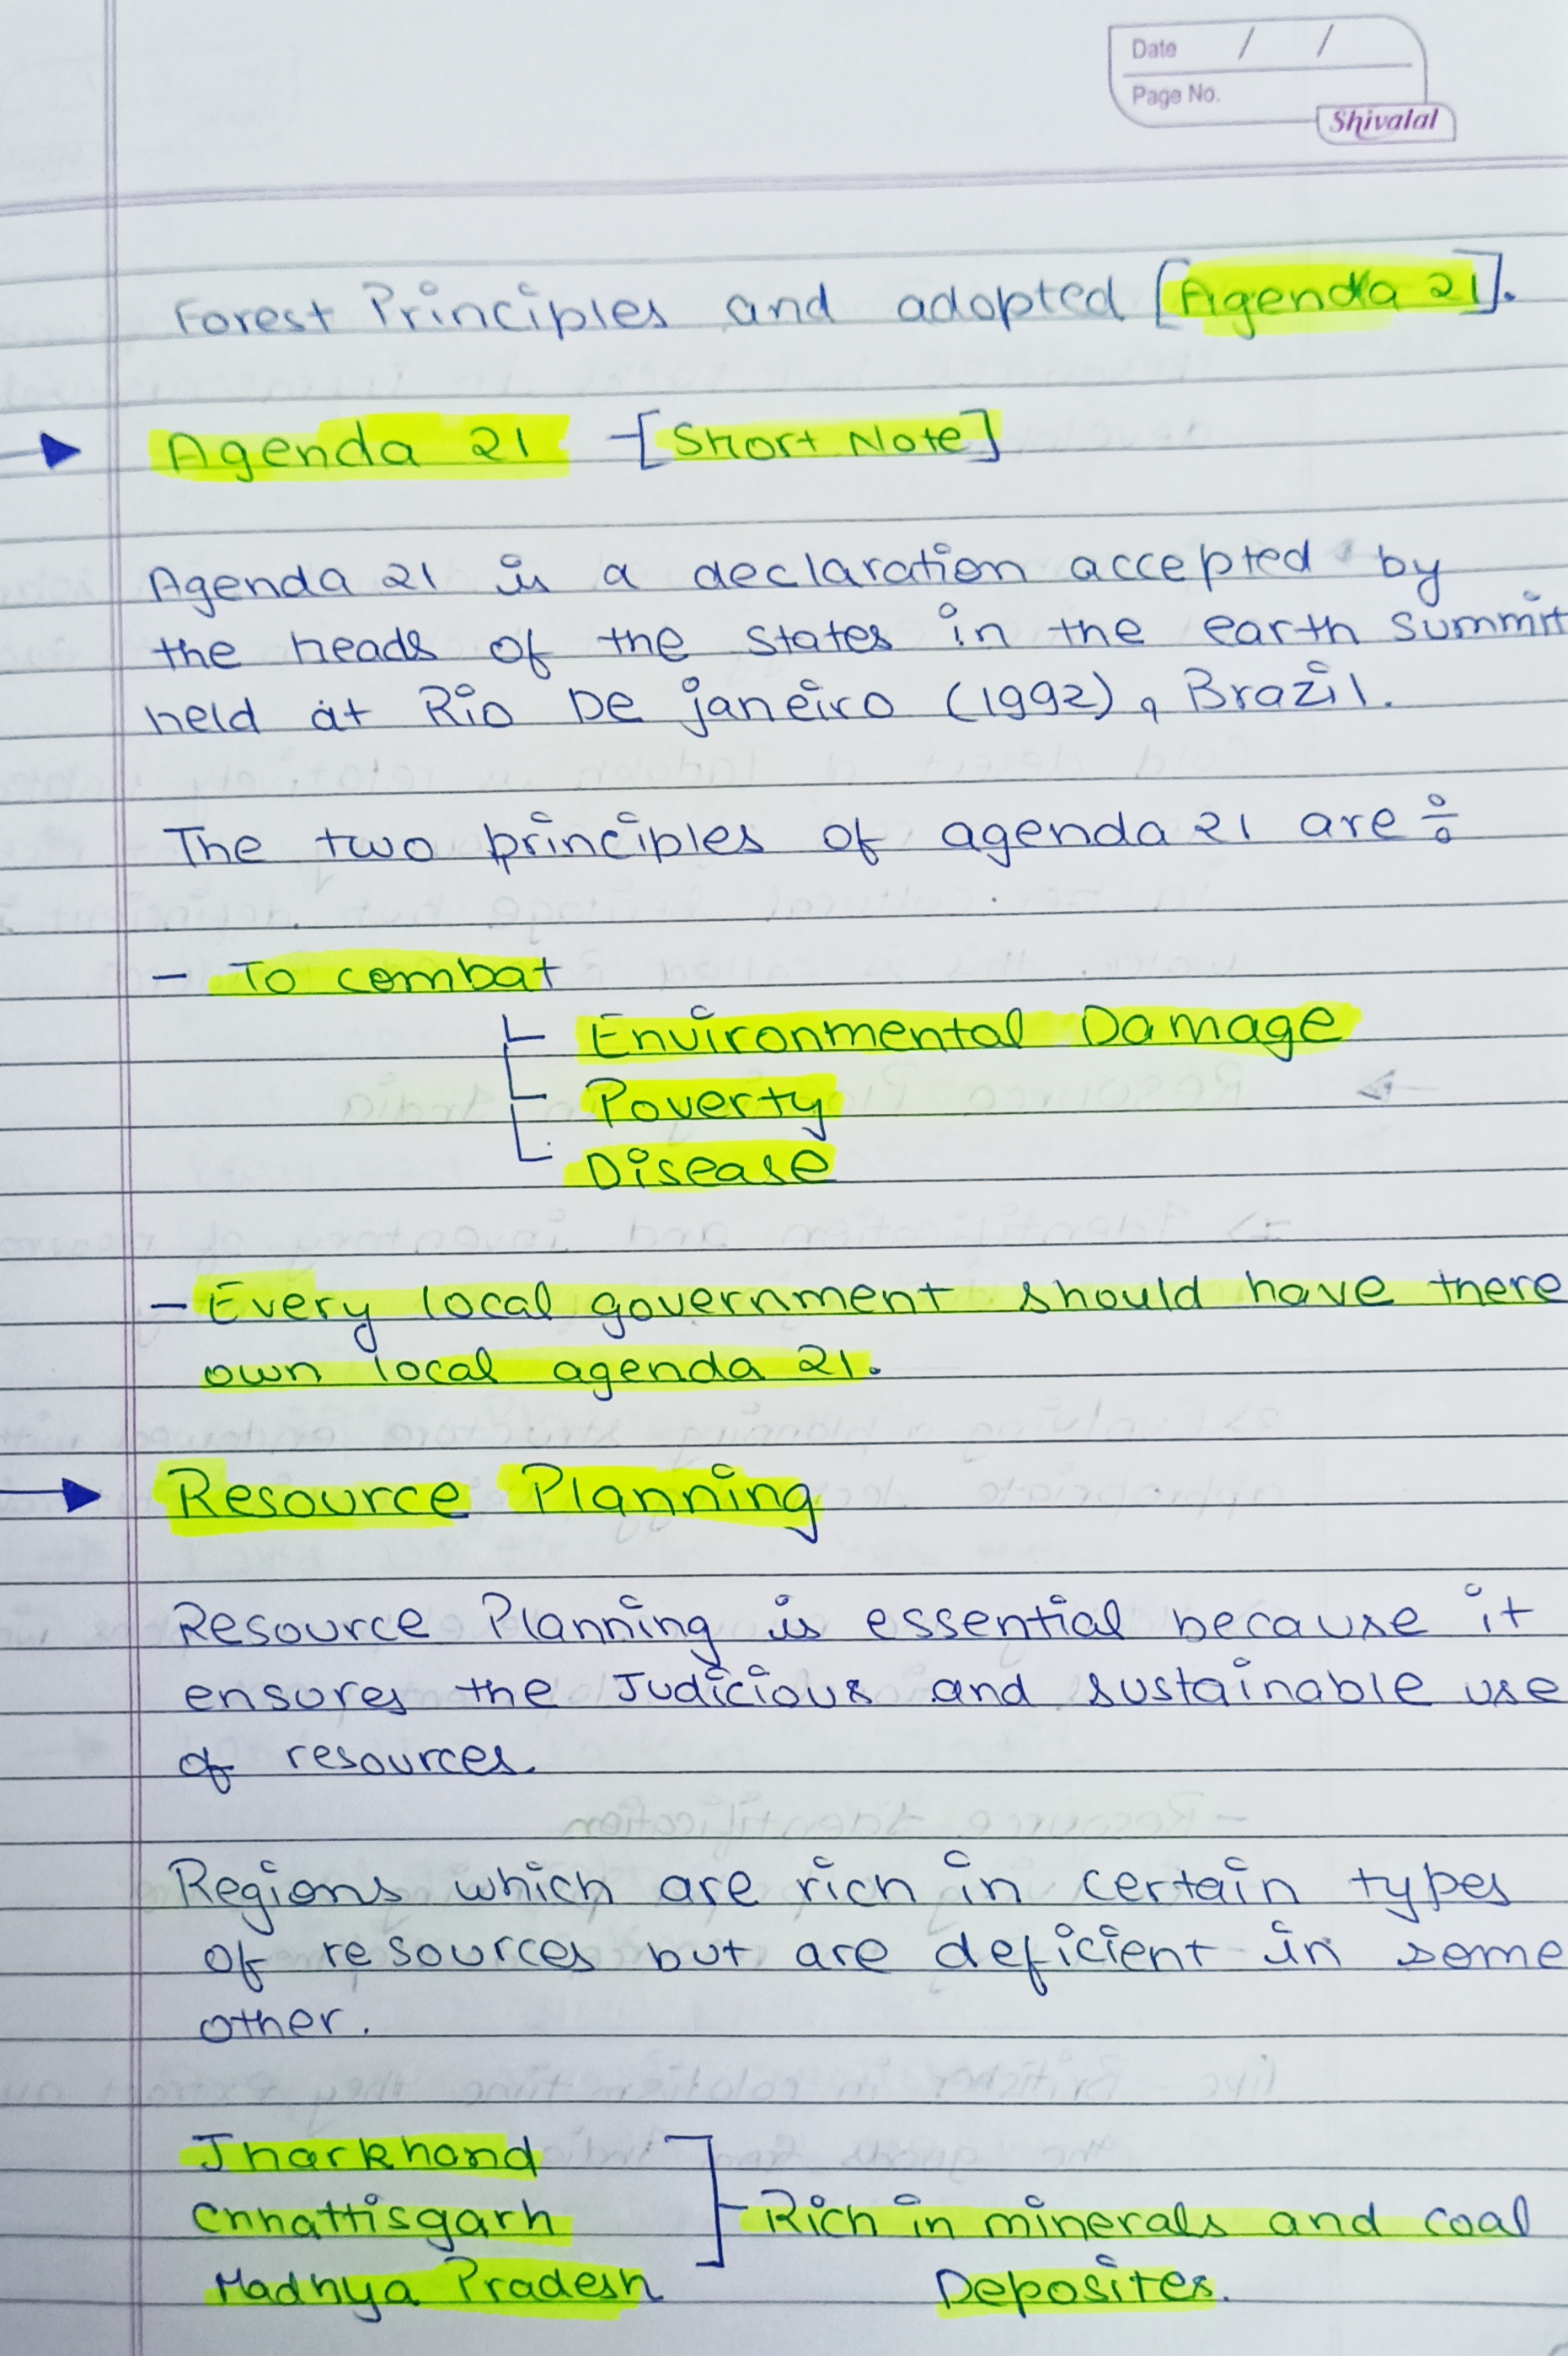 Date / /
Page No.
Shivalal
Forest Principles and adopted [Agenda 21].
Agenda 21 -[Short Note]
Agenda 21 is a declaration accepted by
the heads of the states in the earth summit
held at Rio De janeiro (1992), Brazil.
The two principles of agenda 21 are ÷
- To combat
Environmental Damage
Poverty
Disease
- Every local government should have there
own local agenda 21.
Resource Planning
Resource Planning is essential because it
ensures the Judicious and sustainable use
of resources.
Regions which are rich in certain types
of resources but are deficient in some
other.
Jharkhand
Chhattisgarh
Madhya Pradesh
Rich in minerals and coal
Deposites.